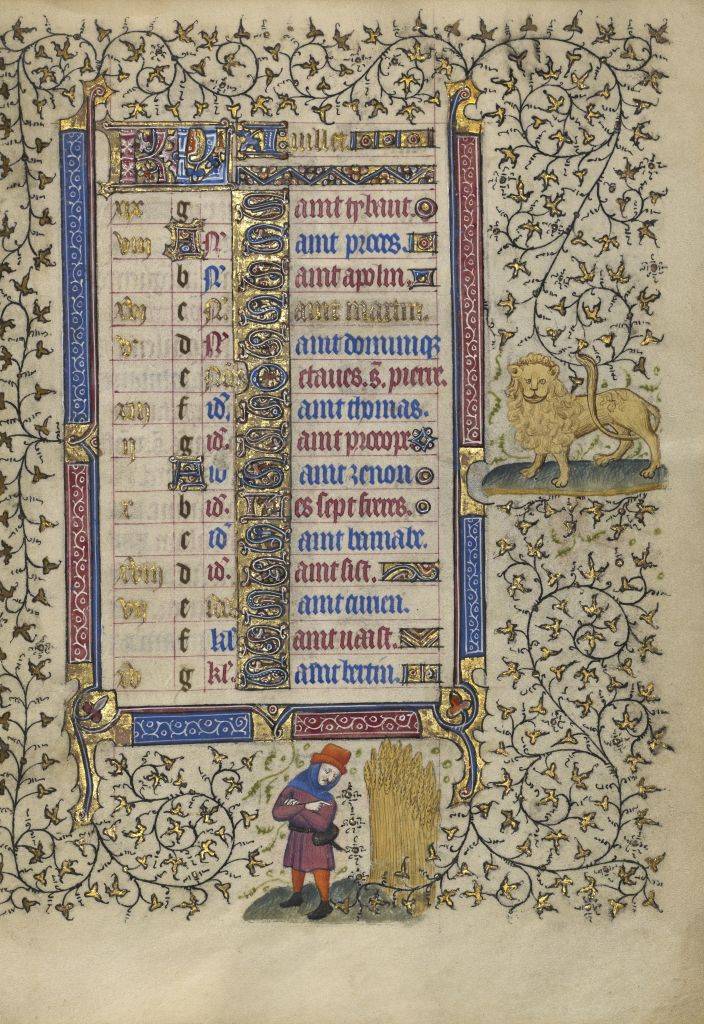 KL Juillet
xix g Saint tybaut.
viii A N. Saint proces.
b N. Saint apolin.
xvi c N. Saint martin.
v d N. Saint dominique
e Octaues. s̃. pierre.
xiii f id. Saint thomas.
ii g id. Saint procope
A id Saint zenon
x b id. Les sept freres.
c id Saint barnabe.
xviii d id. Saint sist.
vii e Saint
f kl Saint uaast.
xv g kl. Saint bertin.